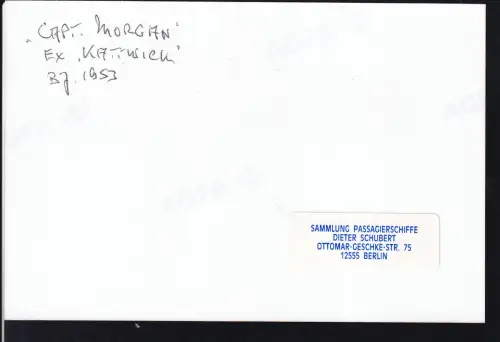 „CAPT. MORGAN"
EX „KATTWICK"
BJ. 1953
AGFA
SAMMLUNG PASSAGIERSCHIFFE
DIETER SCHUBERT
OTTOMAR-GESCHKE-STR. 75
12555 BERLIN